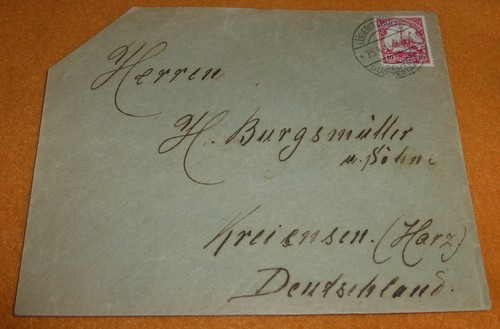 Herren
H. Burgsmüller
u. Söhne
Kreiensen. (Harz)
Deutschland.